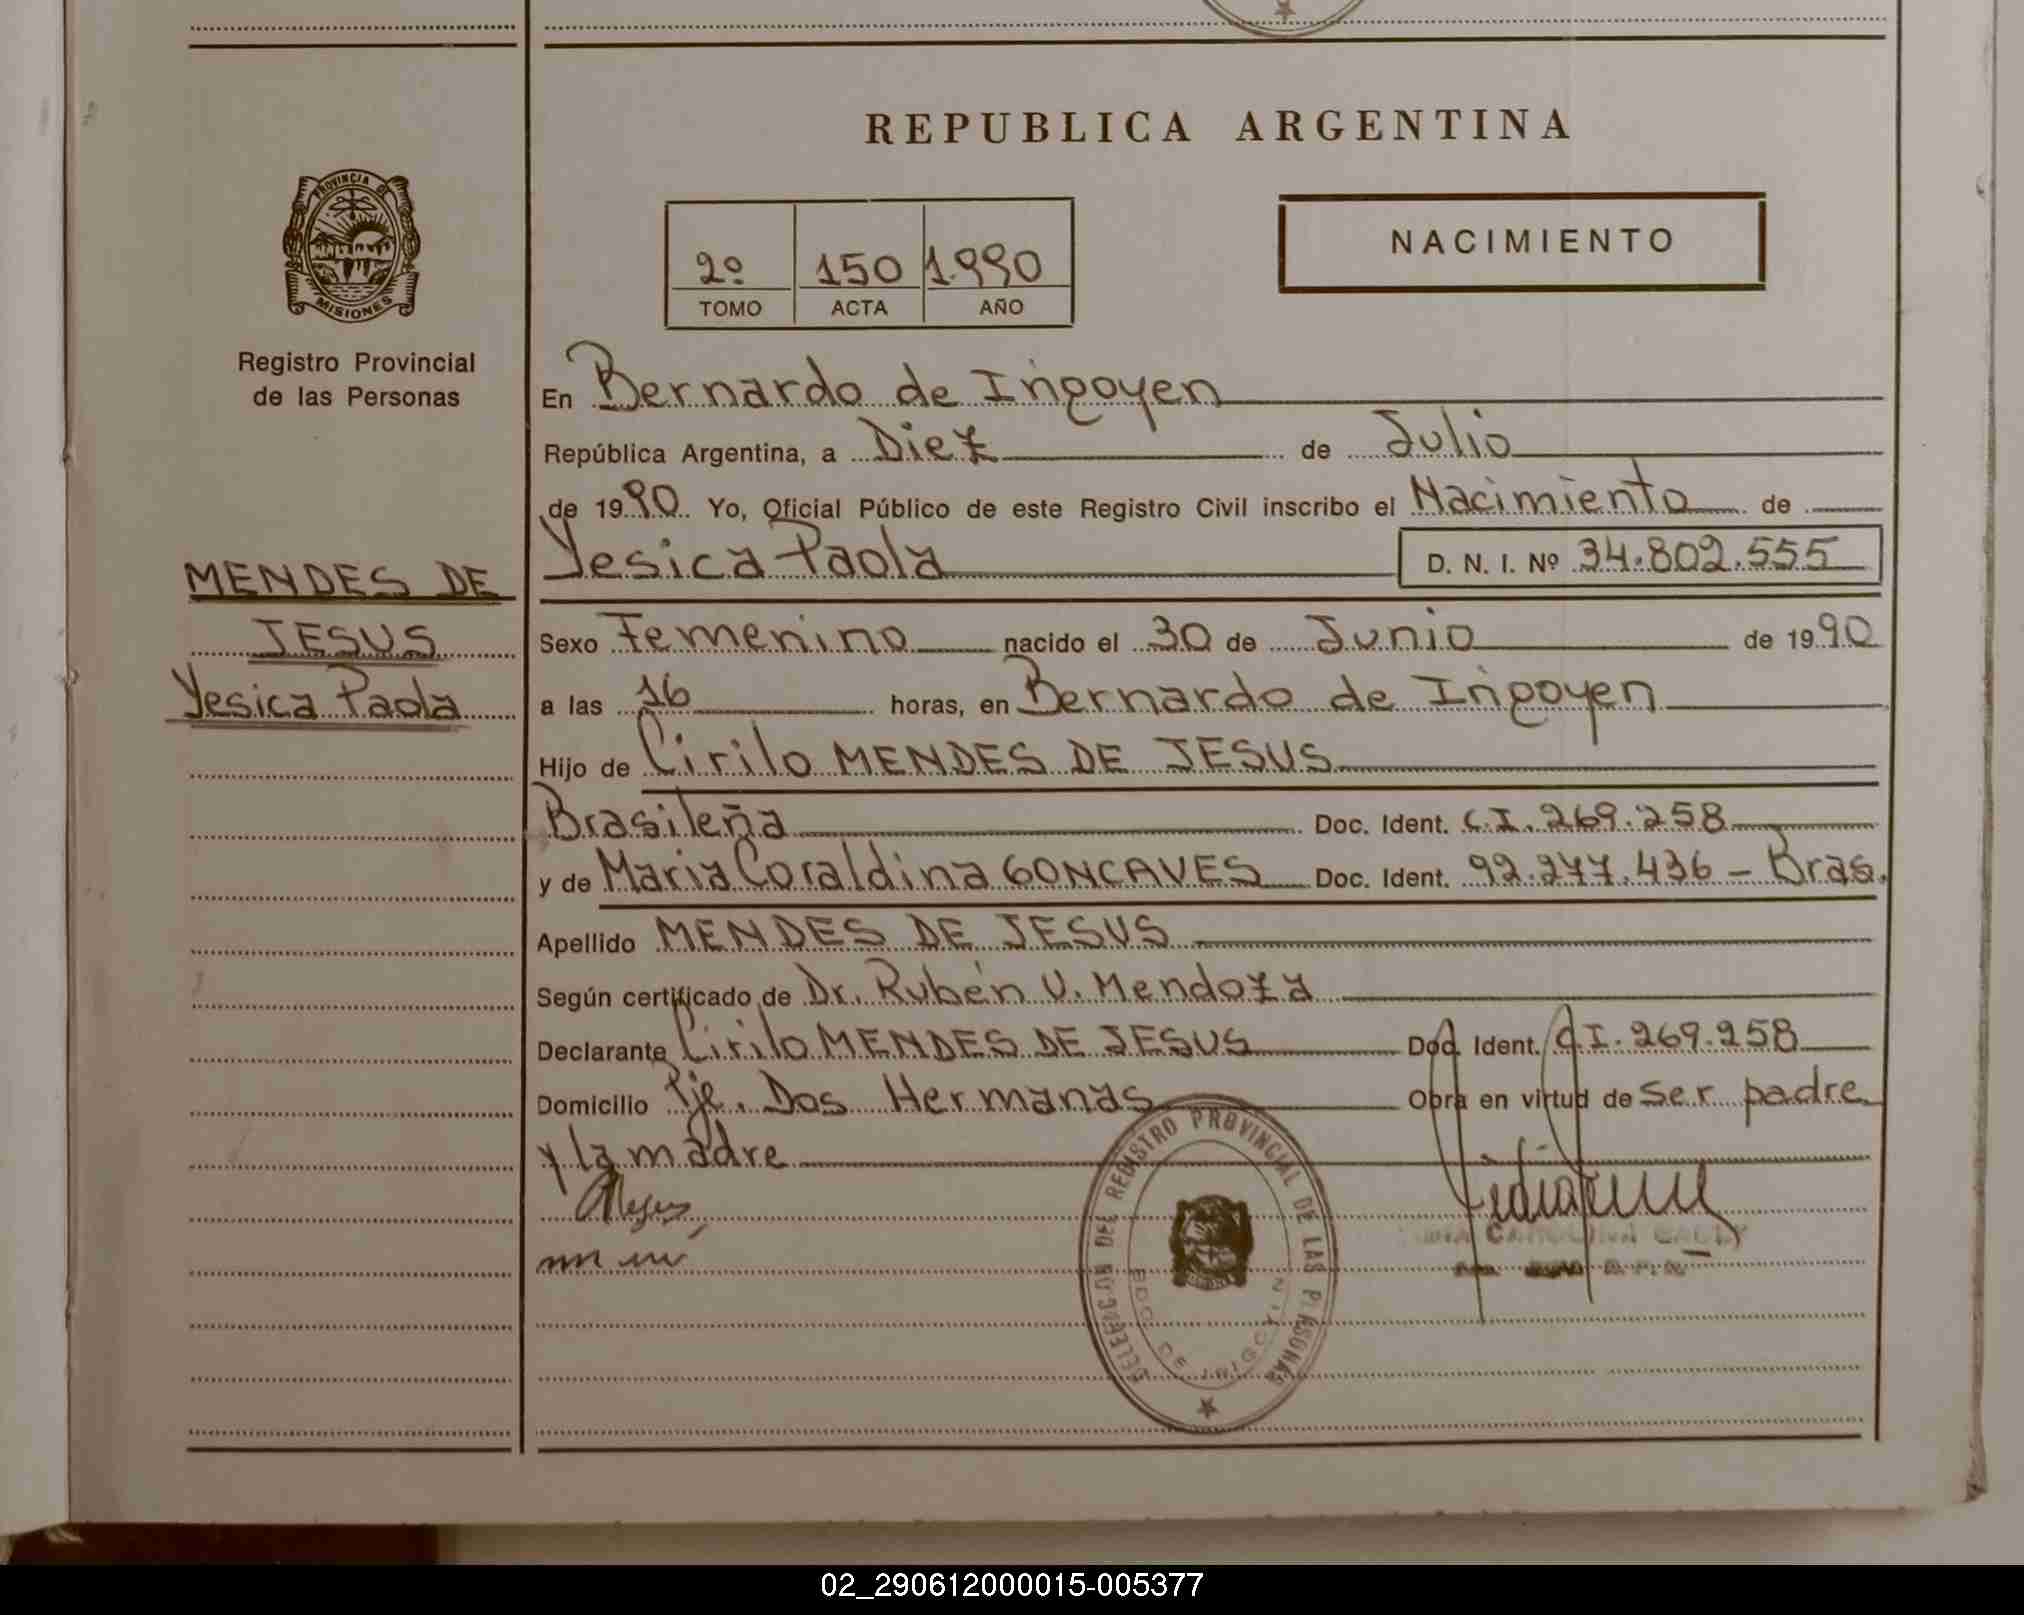 REPUBLICA ARGENTINA
PROVINCIA DE
MISIONES
Registro Provincial
de las Personas
NACIMIENTO
2º 150 1.990
TOMO ACTA AÑO
En Bernardo de Irigoyen
República Argentina, a Diez de Julio
de 1990 Yo, Oficial Público de este Registro Civil inscribo el Nacimiento de
Yesica Paola D. N. I. Nº 34.802.555
MENDES DE
JESUS
Yesica Paola
Sexo Femenino nacido el 30 de Junio de 1990
a las 16 horas, en Bernardo de Irigoyen
Hijo de Cirilo MENDES DE JESUS
Brasileña Doc. Ident. C.I. 269.258
y de Maria Coraldina GONCAVES Doc. Ident. 92.277.436 - Bras.
Apellido MENDES DE JESUS
Según certificado de Dr. Rubén V. Mendoza
Declarante Cirilo MENDES DE JESUS Doc. Ident. C.I. 269.258
Domicilio Pje. Dos Hermanas Obra en virtud de ser padre
y la madre
DELEGACION DEL REGISTRO PROVINCIAL DE LAS PERSONAS
BDO. DE IRIGOYEN
CAROLINA
02_290612000015-005377